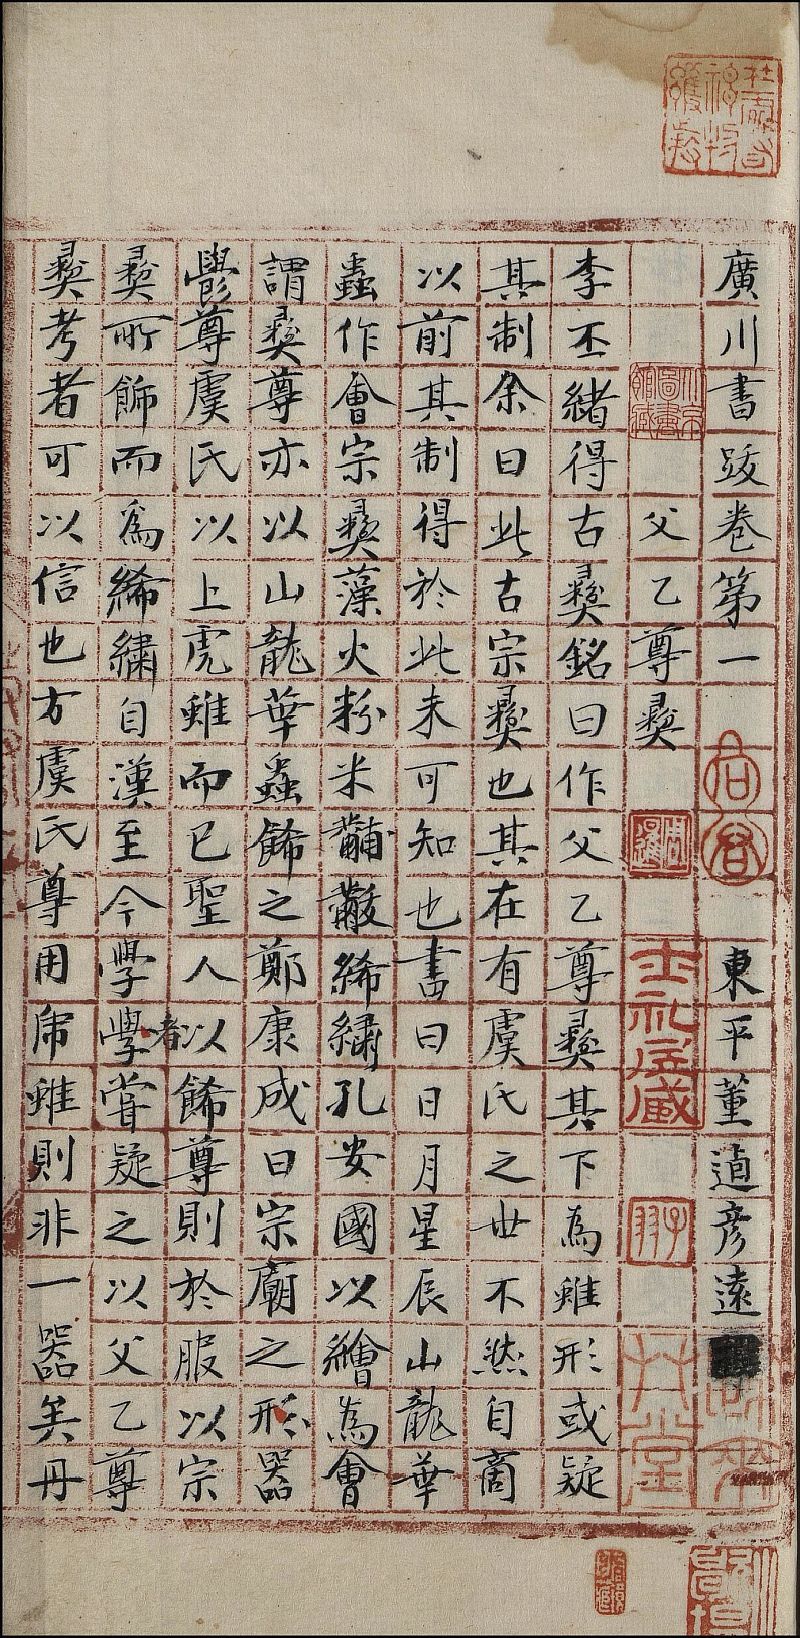 廣川書跋卷第一 東平董逌彦遠
父乙尊彝
李丕緒得古彝銘曰作父乙尊彝其下為雖形或疑
其制余曰此古宗彝也其在有虞氏之世不然自商
以前其制得於此未可知也書曰日月星辰山龍華
蟲作會宗彝藻火粉米黼黻絺繡孔安國以繪為會
謂彝尊亦以山龍華蟲餙之鄭康成曰宗廟之形器
鬱尊虞氏以上虎雖而已聖人以餙尊則於服以宗
彝所飾而為絺繡自漢至今學學者嘗疑之以父乙尊
彝考者可以信也方虞氏尊用虎雖則非一器矣丹